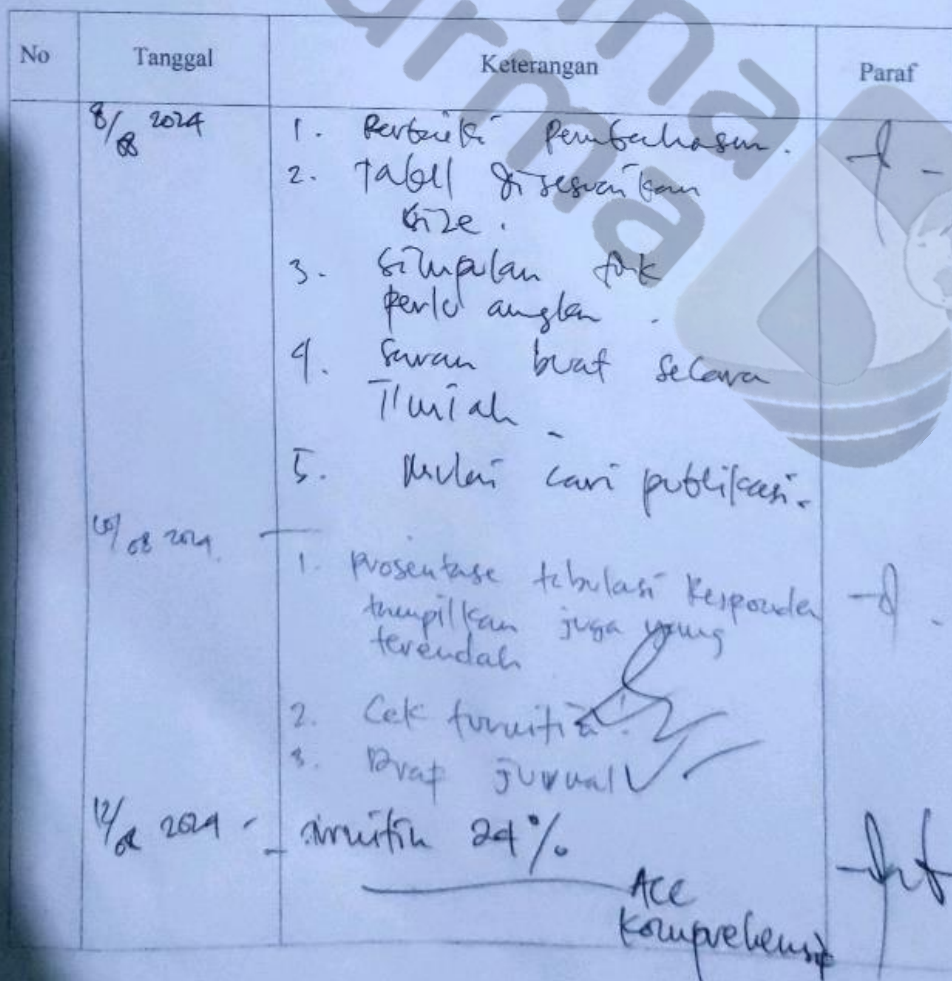 No Tanggal Keterangan Paraf
8/08 2024 1. Perbaiki Pembahasan.
2. Tabel disesuaikan
size.
3. Simpulan tdk
perlu angka.
4. Saran buat secara
Ilmiah
5. Mulai cari publikasi.
10/08 2024
1. Prosentase tabulasi Responden
tampilkan juga yang
terendah
2. Cek turnitin.
3. Draf jurnal
12/08 2024 - turnitin 24%
ACC
Komprehensif